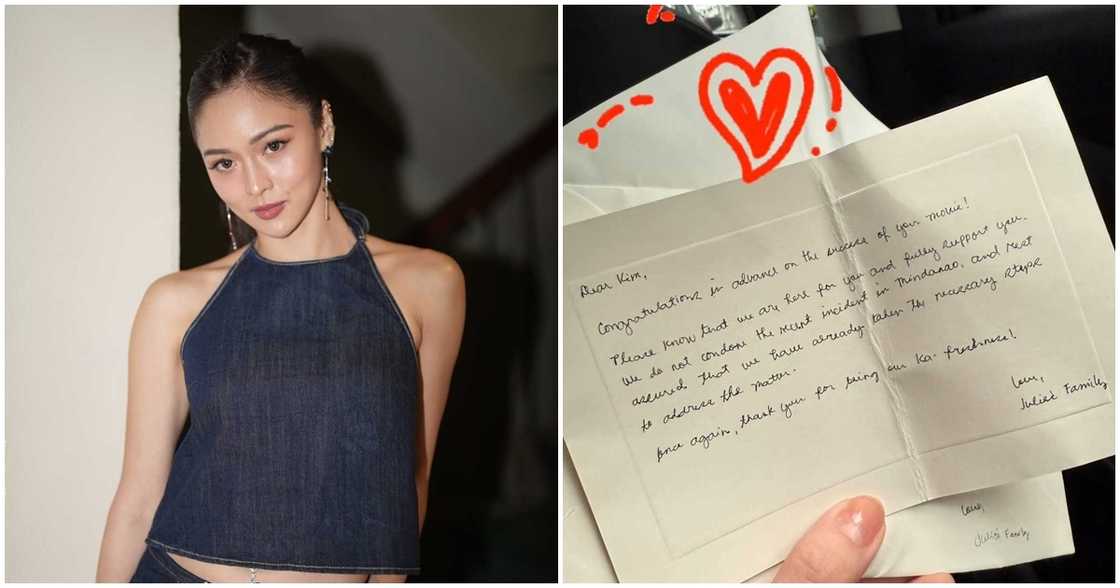 Dear Kim,
Congratulations in advance on the success of your movie!
Please know that we are here for you and fully support you.
We do not condone the recent incident in Mindanao, and rest
assured that we have already taken the necessary steps
to address the matter.
Once again, thank you for being our Ka-freshness!
Love,
Julie's Family
Love,
Julie's Family